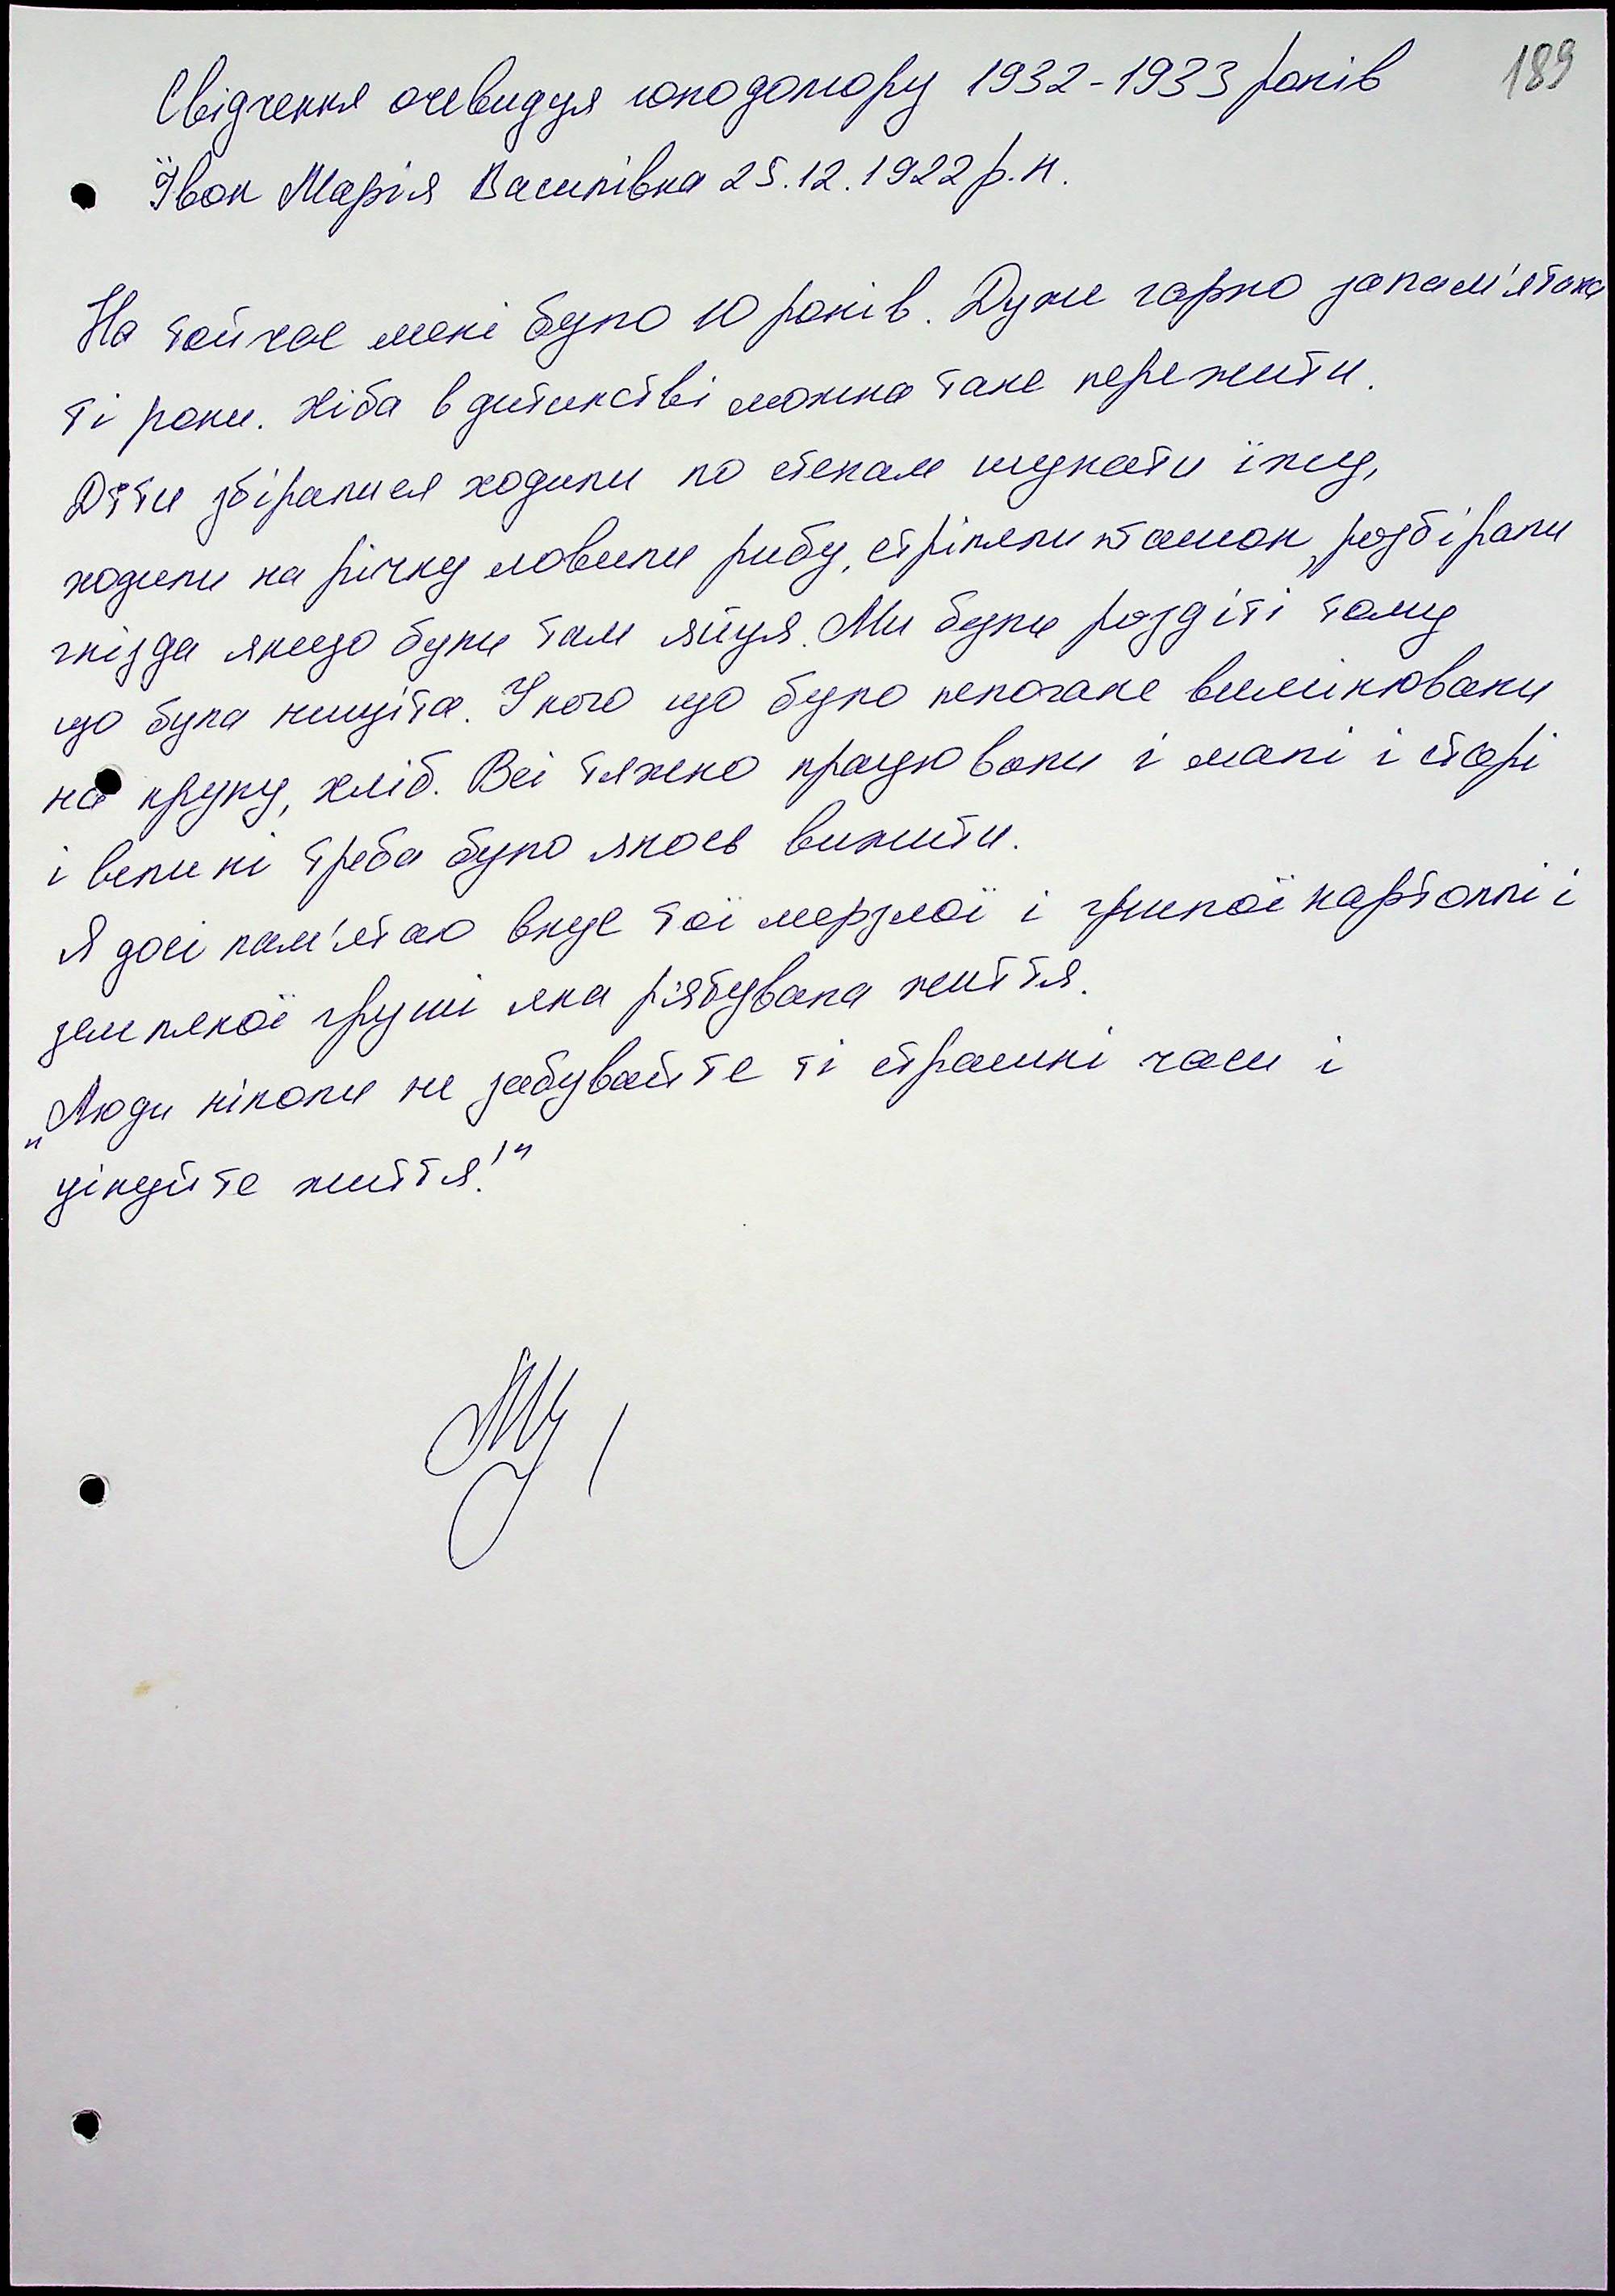 189
Свідчення очевидця голодомору 1932-1933 років
Ївок Марія Василівна 25.12.1922 р.н.
На той час мені було 10 років. Дуже гарно запам'ятала
ті роки. Хіба в дитинстві можна таке пережити.
Діти збіралися ходили по степам шукати їжу,
ходили на річку ловили рибу, стріляли пташок, розбірали
гнізда якщо були там яйця. Ми були роздіті тому
що була нищіта. У кого що було непогане вимінювали
на крупу, хліб. Всі тяжко працювали і малі і старі
і великі треба було якось вижити.
Я досі пам'ятаю вкус тої мерзлої і гнилої картоплі і
земляної груші яка рятувала життя.
„Люди ніколи не забувайте ті страшні часи і
цінуйте життя!"